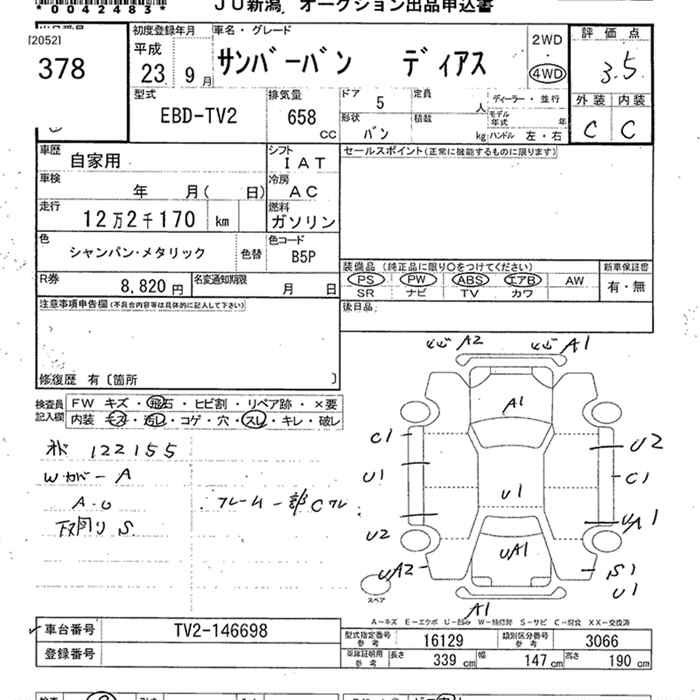 *0042483*
JU新潟 オークション出品申込書
[2052]
378
初度登録年月
平成
23年 9月
車名・グレード
サンバーバン ディアス
2WD
4WD
評価点
3.5
外装 内装
C C
型式
EBD-TV2
排気量
658 CC
ドア 5
定員 人
形状 バン
積載 kg
ディーラー・並行
モデル年式 年
ハンドル 左・右
車歴 自家用
シフト IAT
セールスポイント(正常に機能するものに限ります)
車検 年 月( 日)
冷房 AC
走行 12万2千170 km
燃料 ガソリン
色 シャンパン・メタリック 色替
色コード B5P
R券 8,820円
名変通知期限 月 日
装備品(純正品に限り○をつけてください)
PS PW ABS エアB AW
SR ナビ TV カワ
新車保証書
有・無
後日品
注意事項申告欄(不具合内容等は具体的に記入して下さい)
修復歴 有〔箇所 〕
検査員記入欄
FW キズ・飛石・ヒビ割・リペア跡・×要
内装 モス・汚レ・コゲ・穴・スレ・キレ・破レ
122155
Wカバー A
A.U
下回り S
フレーム一部Cアレ
A2 A1
A1
C1
U1
U2
UA2
U1
UA1
U2
C1
UA1
S1
U1
A1
スペア
A-キズ E-エクボ U-凹み W-補修跡 S-サビ C-腐食 XX-交換済
車台番号 TV2-146698
登録番号
型式指定番号参考 16129
類別区分番号参考 3066
車庫証明用参考 長さ 339 cm 幅 147 cm 高さ 190 cm